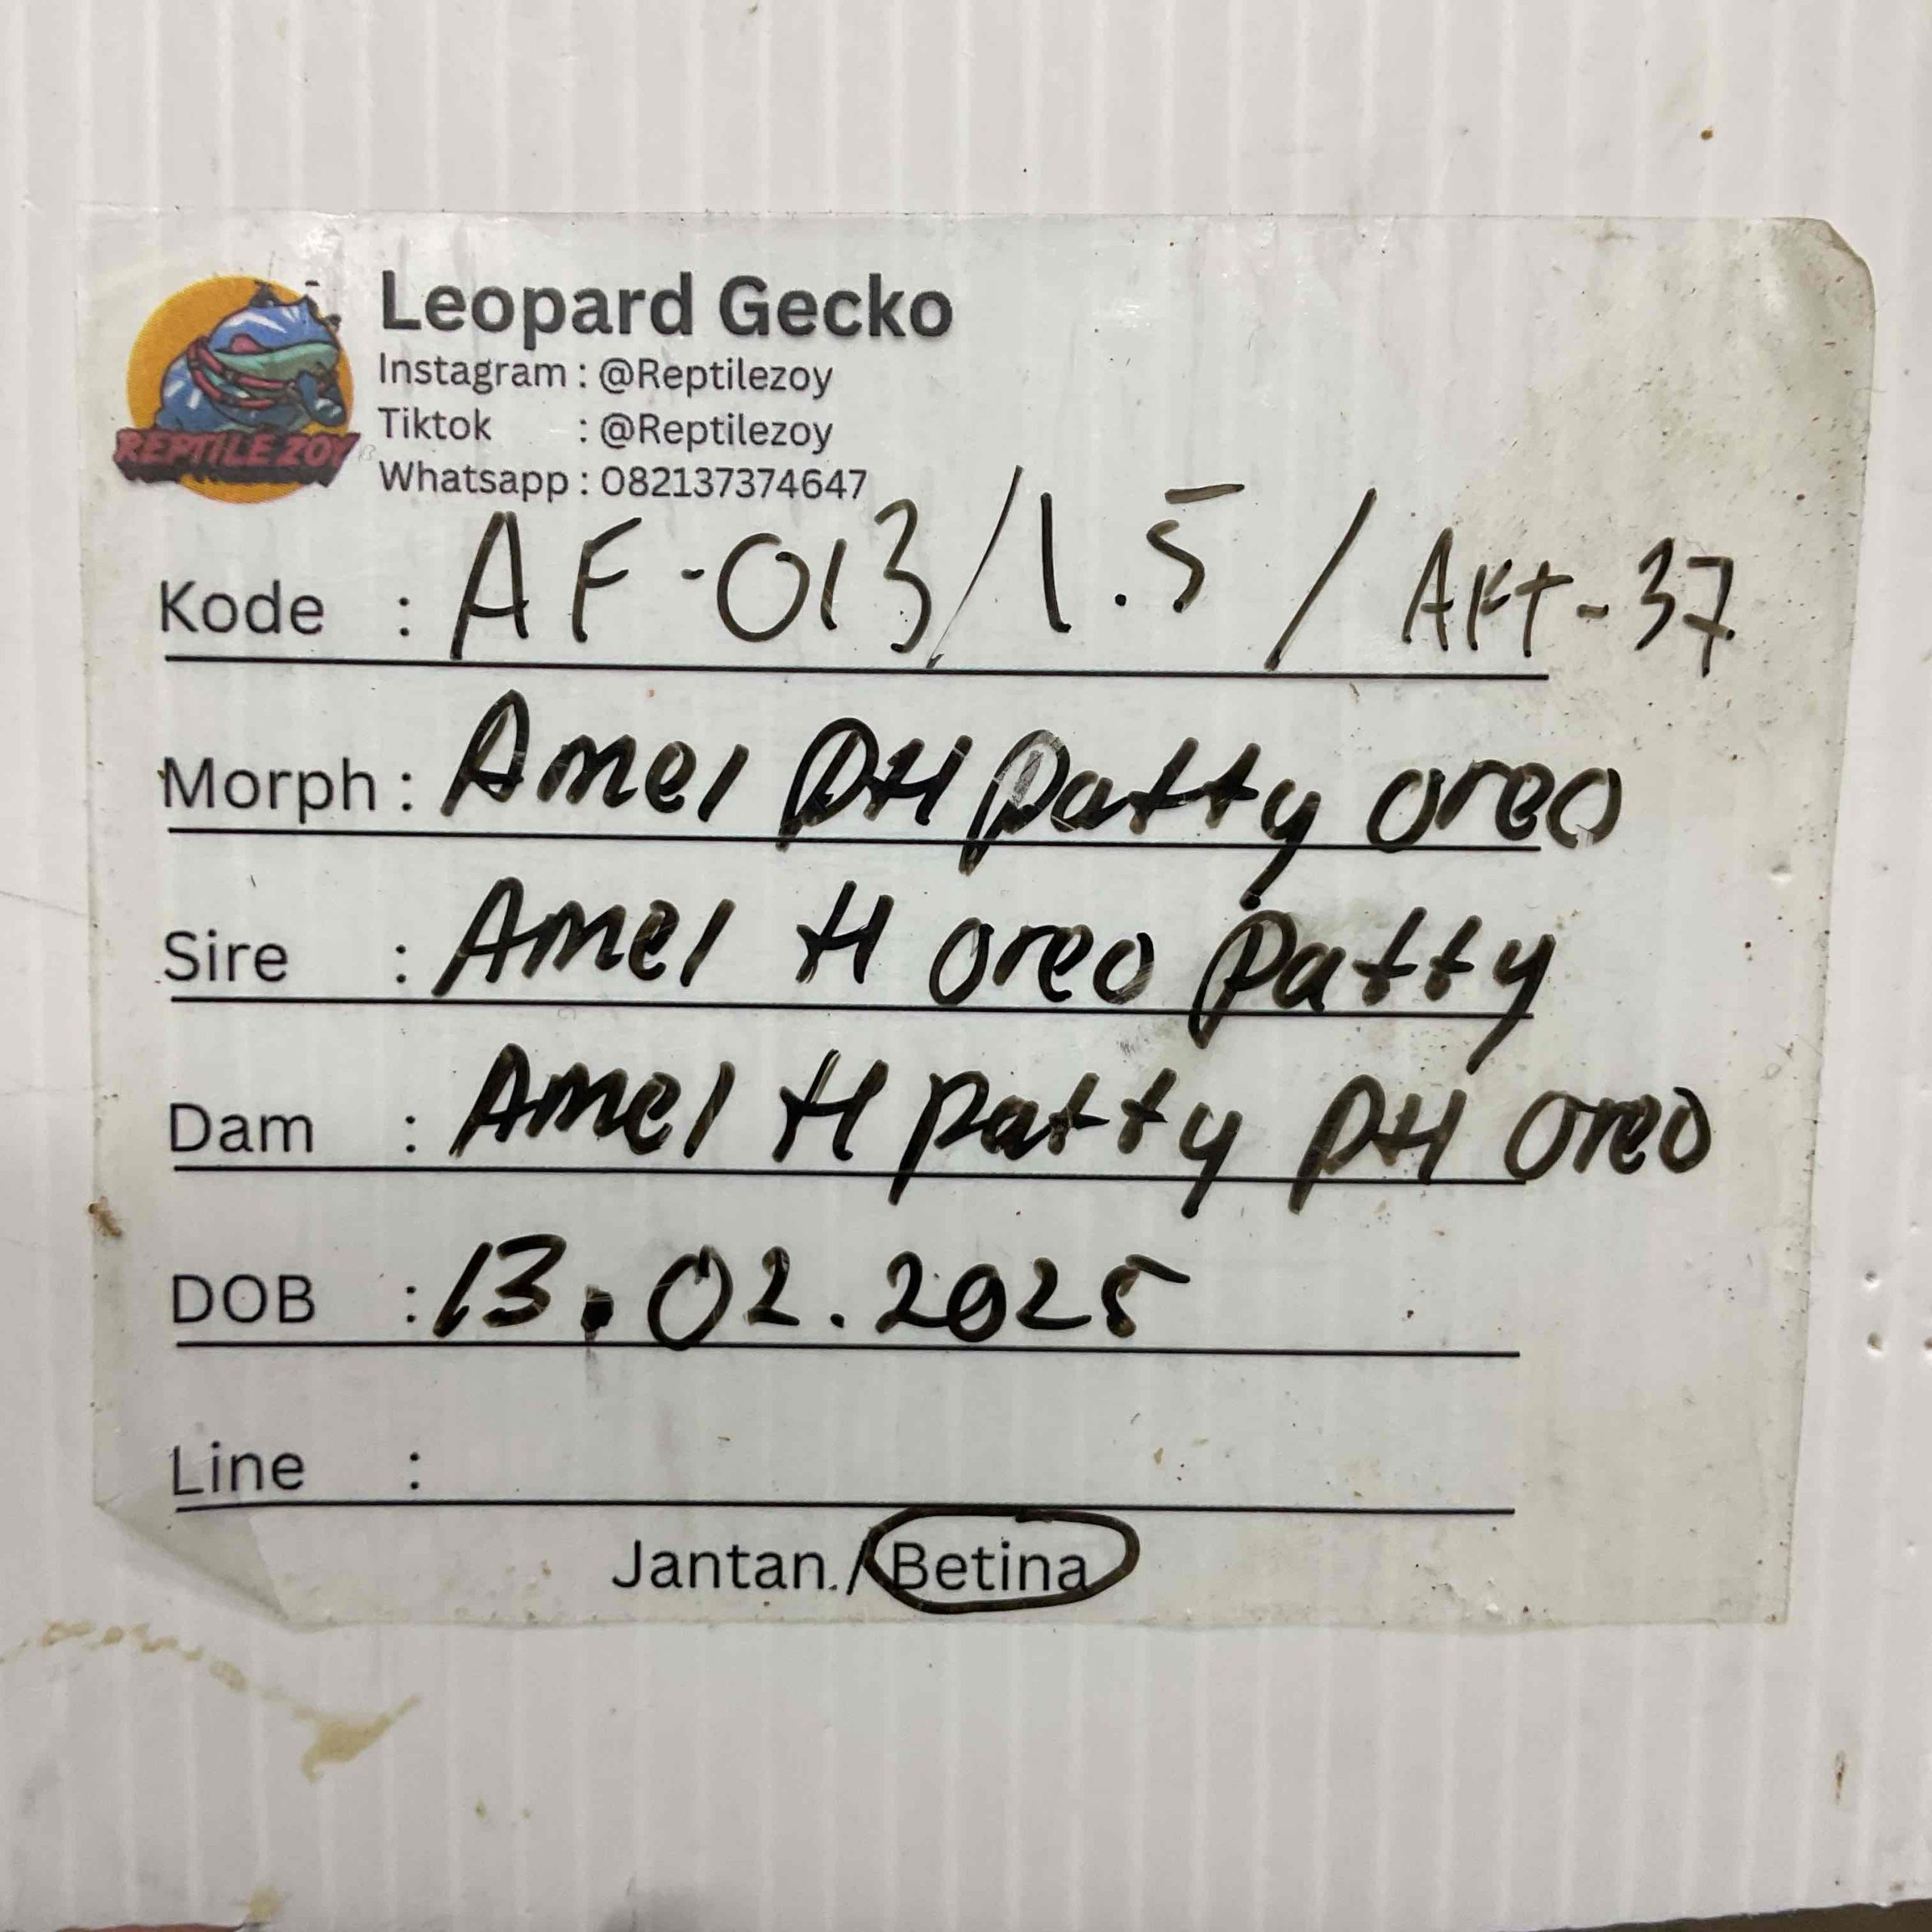 Leopard Gecko
Instagram : @Reptilezoy
Tiktok : @Reptilezoy
Whatsapp : 082137374647
REPTILE ZOY
Kode : AF-013/1.5/AFT-37
Morph : Amel PH patty oreo
Sire : Amel H oreo patty
Dam : Amel H patty PH oreo
DOB : 13.02.2025
Line :
Jantan./Betina